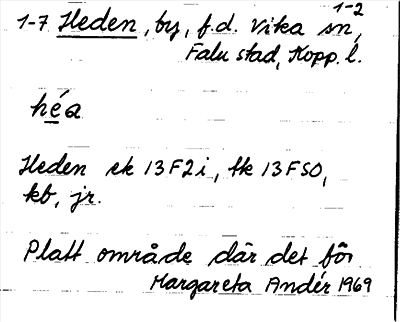 1-2
1-7 Heden, by, f.d. Vika sn,
Falu stad, Kopp. l.
héa
Heden ek 13F2i, tk 13FSO,
kb, jr.
Platt område där det
Margareta Andér 1969